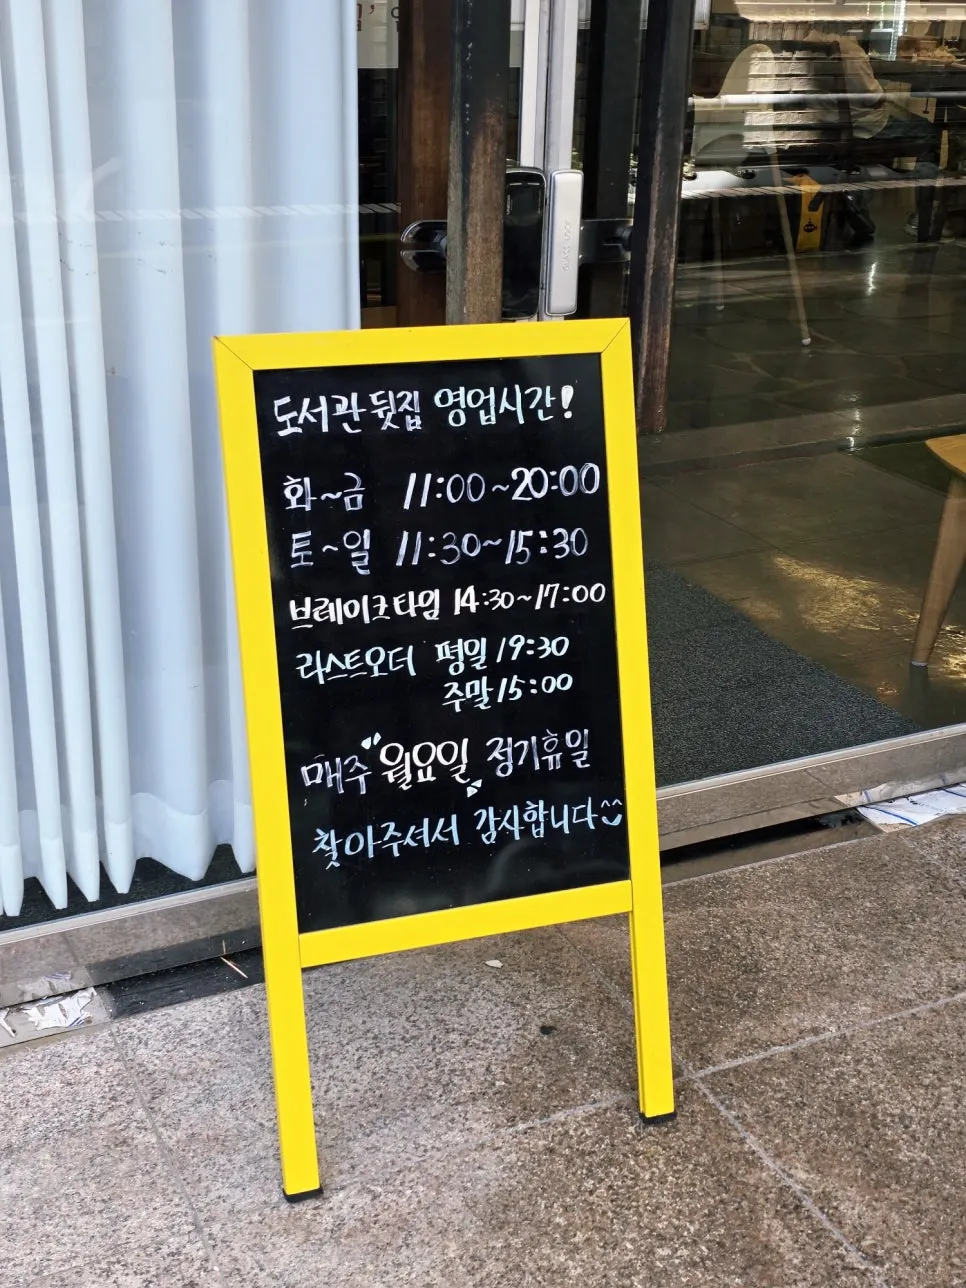 도서관 뒷집 영업시간!
화~금 11:00~20:00
토~일 11:30~15:30
브레이크타임 14:30~17:00
라스트오더 평일 19:30
주말 15:00
매주 "월요일" 정기휴일
찾아주셔서 감사합니다^^
GLASS LOCK